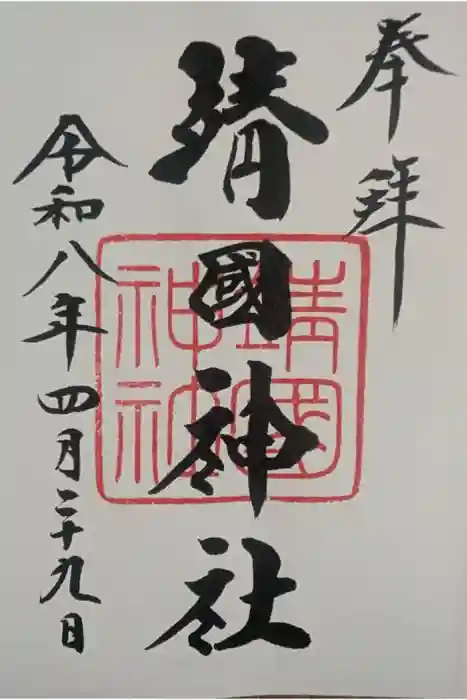 奉拝
靖國神社
靖國
神社
令和八年四月二十九日